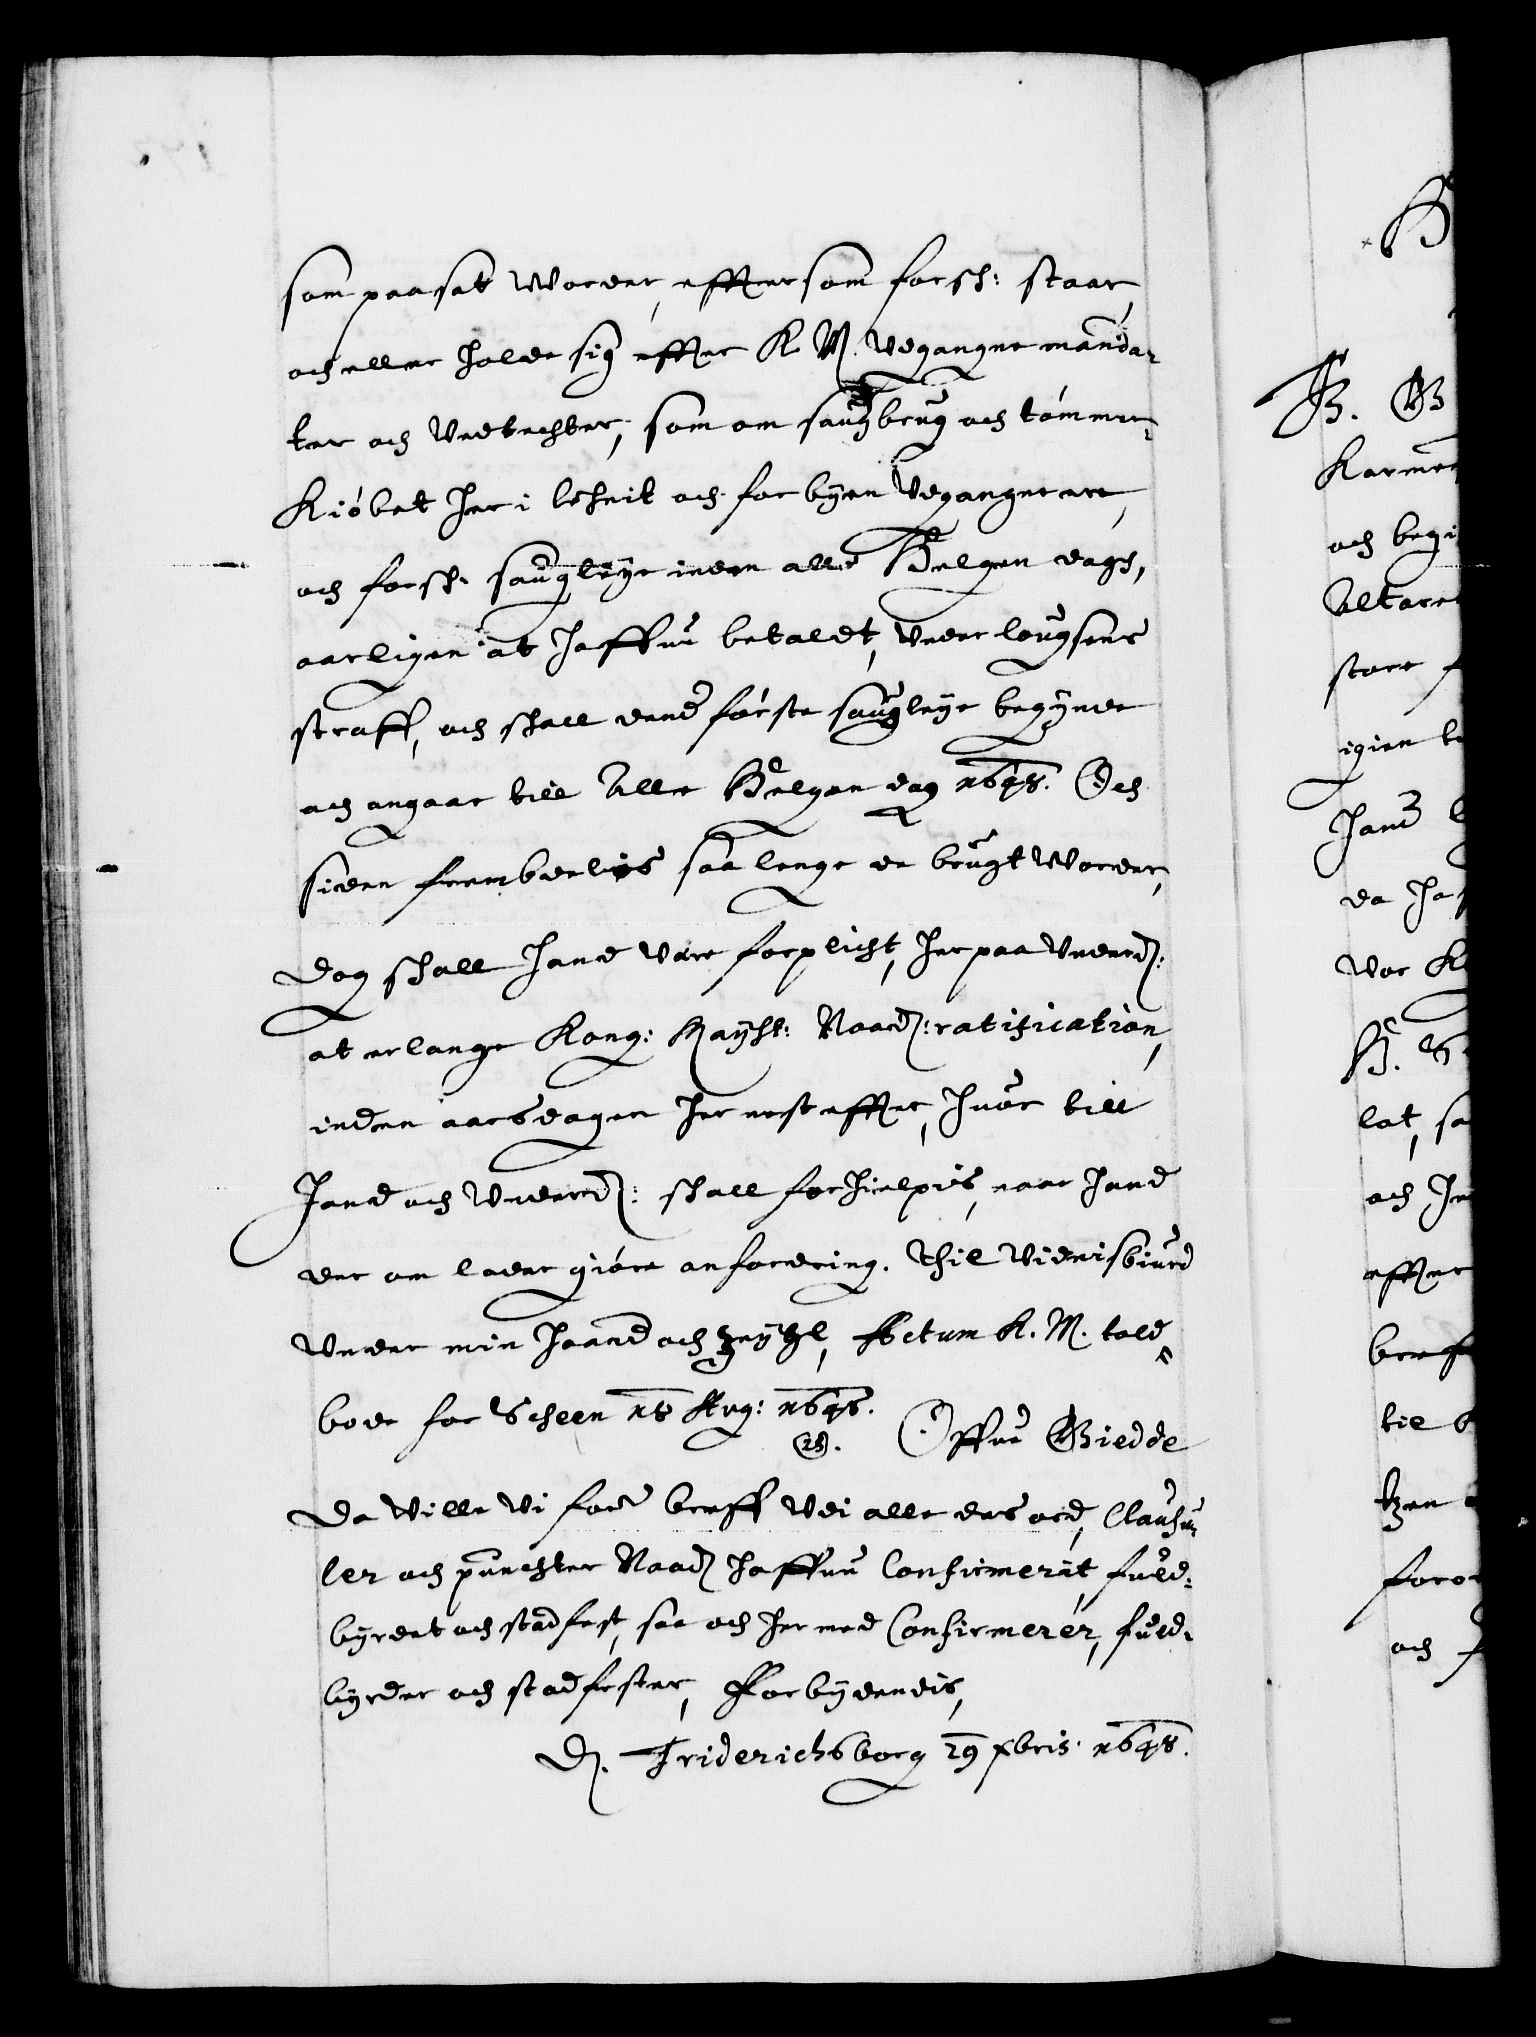 som paasat worder, effter som forsch: staar,
och eller holde sig effter K M. udgangne manda-
ter och Vedtechter, som om saugbrug och tömmer-
Kiöbet her i lehnit och for byen udgangne ere,
och forsch: saugleye inden alle Helgen dagh,
aarligen at haffue betaldt, under lougsens
straff, och schall dend förste saugleye begynde
och angaar till Alle Helgen dag 1648. Och
siden frembdelis saa lenge de brugt worder,
dog schall hand vere forplicht, her paa underd:
at erlange Kong: Mayst: Naad: ratification,
inden aarsdagen her nest effter, huor till
hand och underd: schall forhielpis, naar hand
der om lader giöre anfordring. Thil Vidnisbiurd
under min haand och Zeyhl, Actum K. M. told
bode for Scheen 18 Aug: 1648.
(LS). Offue Giedde
Da wille wi for.ne breff udi alle des ord, Clausu-
ler och puncter Naad: haffue Confirmerit, fuld-
byrdet och stadfest, saa och her med Confirmerer, fuld-
byrder och stadfester, Forbydendis,
D. Friderichsborg 29 xbris. 1648.
B
B. G
Karme
och begi
Altare
store f
igien be
hand
da ha
vor K
H. S
lat, sa
och he
effter
bref
til
tzen
foro
och f